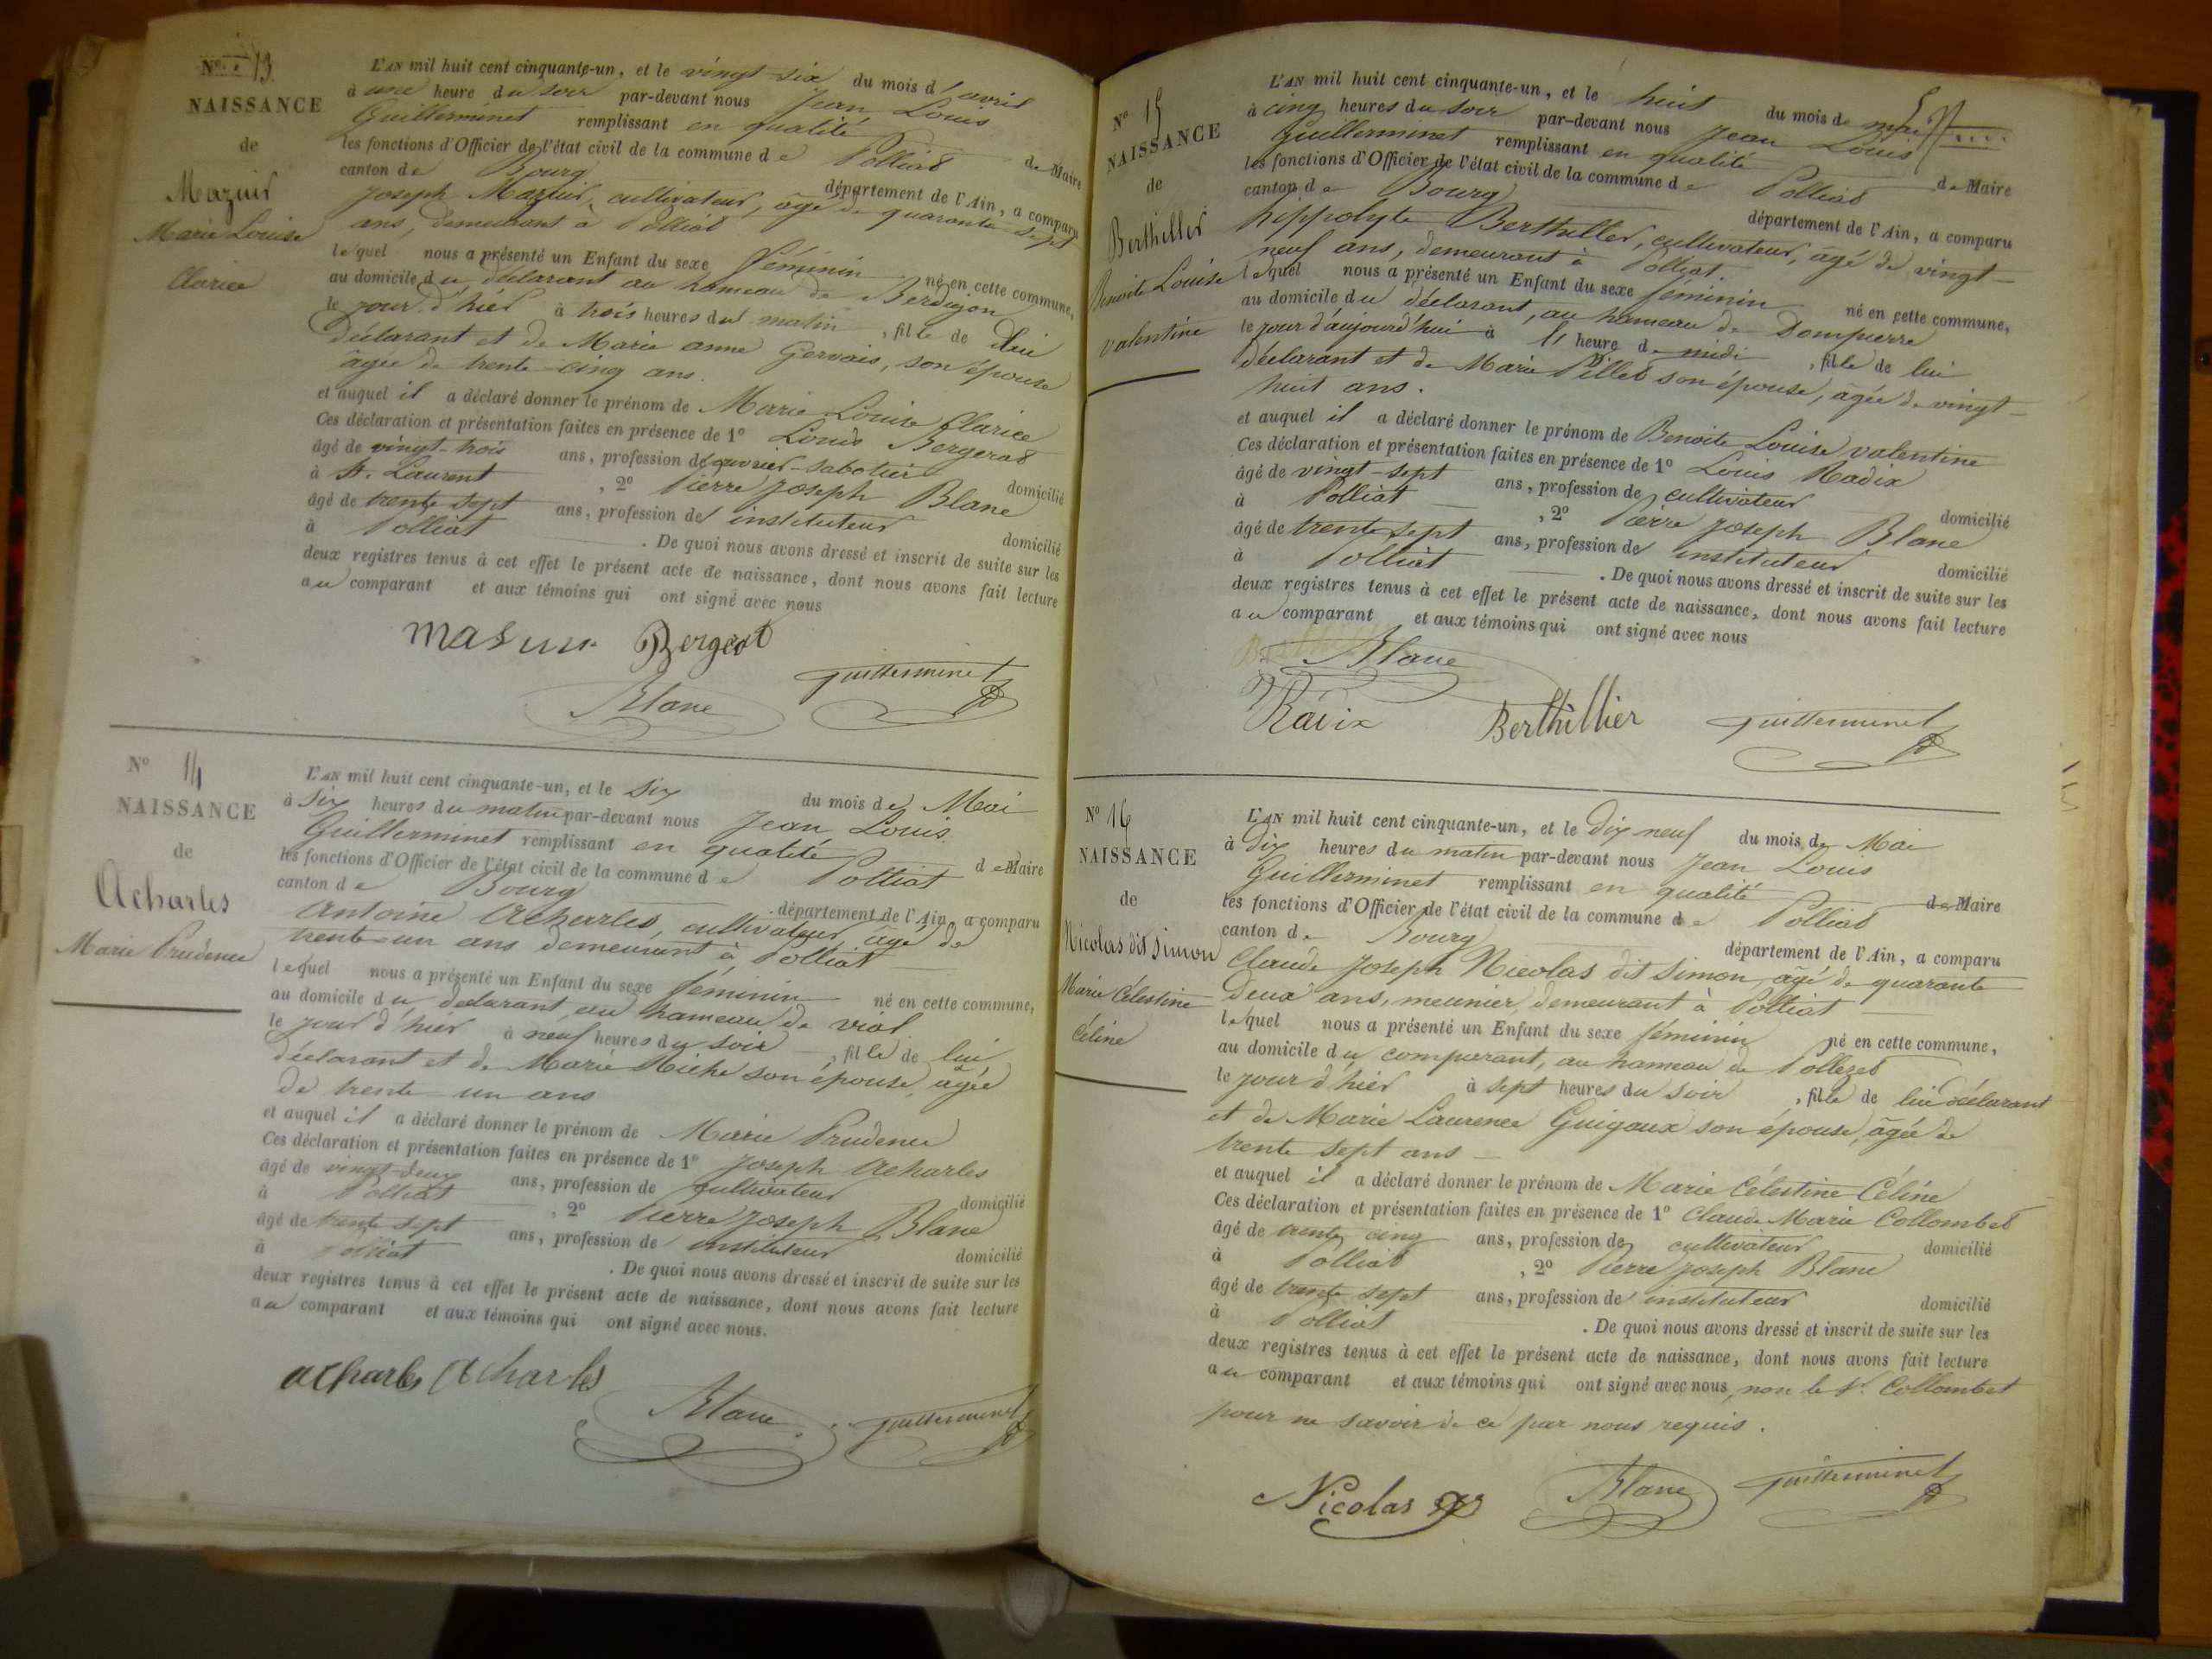 N° 13
NAISSANCE
de
Mazuir
Marie Louise
Clarice
L'AN mil huit cent cinquante-un, et le vingt six du mois d'avril
à une heure du soir par-devant nous Jean Louis
Guillerminet remplissant en qualité de Maire
les fonctions d'Officier de l'état civil de la commune de Polliat
canton de Bourg département de l'Ain, a comparu
Joseph Mazuir, cultivateur, âgé de quarante sept
ans, demeurant à Polliat
lequel nous a présenté un Enfant du sexe féminin né en cette commune,
au domicile du déclarant au hameau de
le jour d'hier à trois heures du matin, fille de lui
déclarant et de Marie anne Gervais, son épouse
âgée de trente-cinq ans.
et auquel il a déclaré donner le prénom de Marie Louise Clarice
Ces déclaration et présentation faites en présence de 1° Louis Bergerat
âgé de vingt-trois ans, profession de ouvrier-sabotier domicilié
à St. Laurent, 2° Pierre Joseph Blanc
âgé de trente sept ans, profession de instituteur domicilié
à Polliat. De quoi nous avons dressé et inscrit de suite sur les
deux registres tenus à cet effet le présent acte de naissance, dont nous avons fait lecture
au comparant et aux témoins qui ont signé avec nous
Bergerat
Blanc guillerminet
N° 14
NAISSANCE
de
Acharles
Marie Prudence
L'AN mil huit cent cinquante-un, et le six du mois de Mai
à six heures du matin par-devant nous Jean Louis
Guillerminet remplissant en qualité de Maire
les fonctions d'Officier de l'état civil de la commune de Polliat
canton de Bourg département de l'Ain, a comparu
Antoine Acharles, cultivateur, âgé de
trente-un ans demeurant à Polliat
lequel nous a présenté un Enfant du sexe féminin né en cette commune,
au domicile du déclarant, au hameau de vial
le jour d'hier à neuf heures du soir, fille de lui
déclarant et de Marie Riche son épouse, âgée
de trente un ans
et auquel il a déclaré donner le prénom de Marie Prudence
Ces déclaration et présentation faites en présence de 1° Joseph Acharles
âgé de vingt-deux ans, profession de cultivateur domicilié
à Polliat, 2° Pierre Joseph Blanc
âgé de trente sept ans, profession de instituteur domicilié
à Polliat. De quoi nous avons dressé et inscrit de suite sur les
deux registres tenus à cet effet le présent acte de naissance, dont nous avons fait lecture
au comparant et aux témoins qui ont signé avec nous.
acharles Acharles
Blanc guillerminet
N° 15
NAISSANCE
de
Berthiller
Benoite Louise
valentine
L'AN mil huit cent cinquante-un, et le huit du mois de mai
à cinq heures du soir par-devant nous Jean Louis
Guillerminet remplissant en qualité de Maire
les fonctions d'Officier de l'état civil de la commune de Polliat
canton de Bourg département de l'Ain, a comparu
hippolyte Berthiller, cultivateur, âgé de vingt-
neuf ans, demeurant à Polliat.
lequel nous a présenté un Enfant du sexe féminin né en cette commune,
au domicile du déclarant, au hameau de Dompierre
le jour d'aujourd'hui à heure de midi, fille de lui
déclarant et de Marie Pillet son épouse, âgée de vingt-
huit ans.
et auquel il a déclaré donner le prénom de Benoite Louise valentine
Ces déclaration et présentation faites en présence de 1° Louis Radix
âgé de vingt-sept ans, profession de cultivateur domicilié
à Polliat, 2° Pierre Joseph Blanc
âgé de trente sept ans, profession de instituteur domicilié
à Polliat. De quoi nous avons dressé et inscrit de suite sur les
deux registres tenus à cet effet le présent acte de naissance, dont nous avons fait lecture
au comparant et aux témoins qui ont signé avec nous
Blanc
Radix Berthillier guillerminet
N° 16
NAISSANCE
de
Nicolas dit Simon
Marie Célestine
Céline
L'AN mil huit cent cinquante-un, et le dix neuf du mois de Mai
à dix heures du matin par-devant nous Jean Louis
Guillerminet remplissant en qualité de Maire
les fonctions d'Officier de l'état civil de la commune de Polliat
canton de Bourg département de l'Ain, a comparu
Claude Joseph Nicolas dit Simon, âgé de quarante
deux ans, meunier, demeurant à Polliat
lequel nous a présenté un Enfant du sexe féminin né en cette commune,
au domicile du comparant, au hameau de Pollezet
le jour d'hier à sept heures du soir, fille de lui déclarant
et de Marie Laurence Guigaux son épouse, âgée de
trente sept ans
et auquel il a déclaré donner le prénom de Marie Célestine Céline
Ces déclaration et présentation faites en présence de 1° Claude Marie Collombet
âgé de trente cinq ans, profession de cultivateur domicilié
à Polliat, 2° Pierre Joseph Blanc
âgé de trente sept ans, profession de instituteur domicilié
à Polliat. De quoi nous avons dressé et inscrit de suite sur les
deux registres tenus à cet effet le présent acte de naissance, dont nous avons fait lecture
au comparant et aux témoins qui ont signé avec nous, non le Sr. Collombet
pour ne savoir de ce par nous requis.
Nicolas Blanc guillerminet